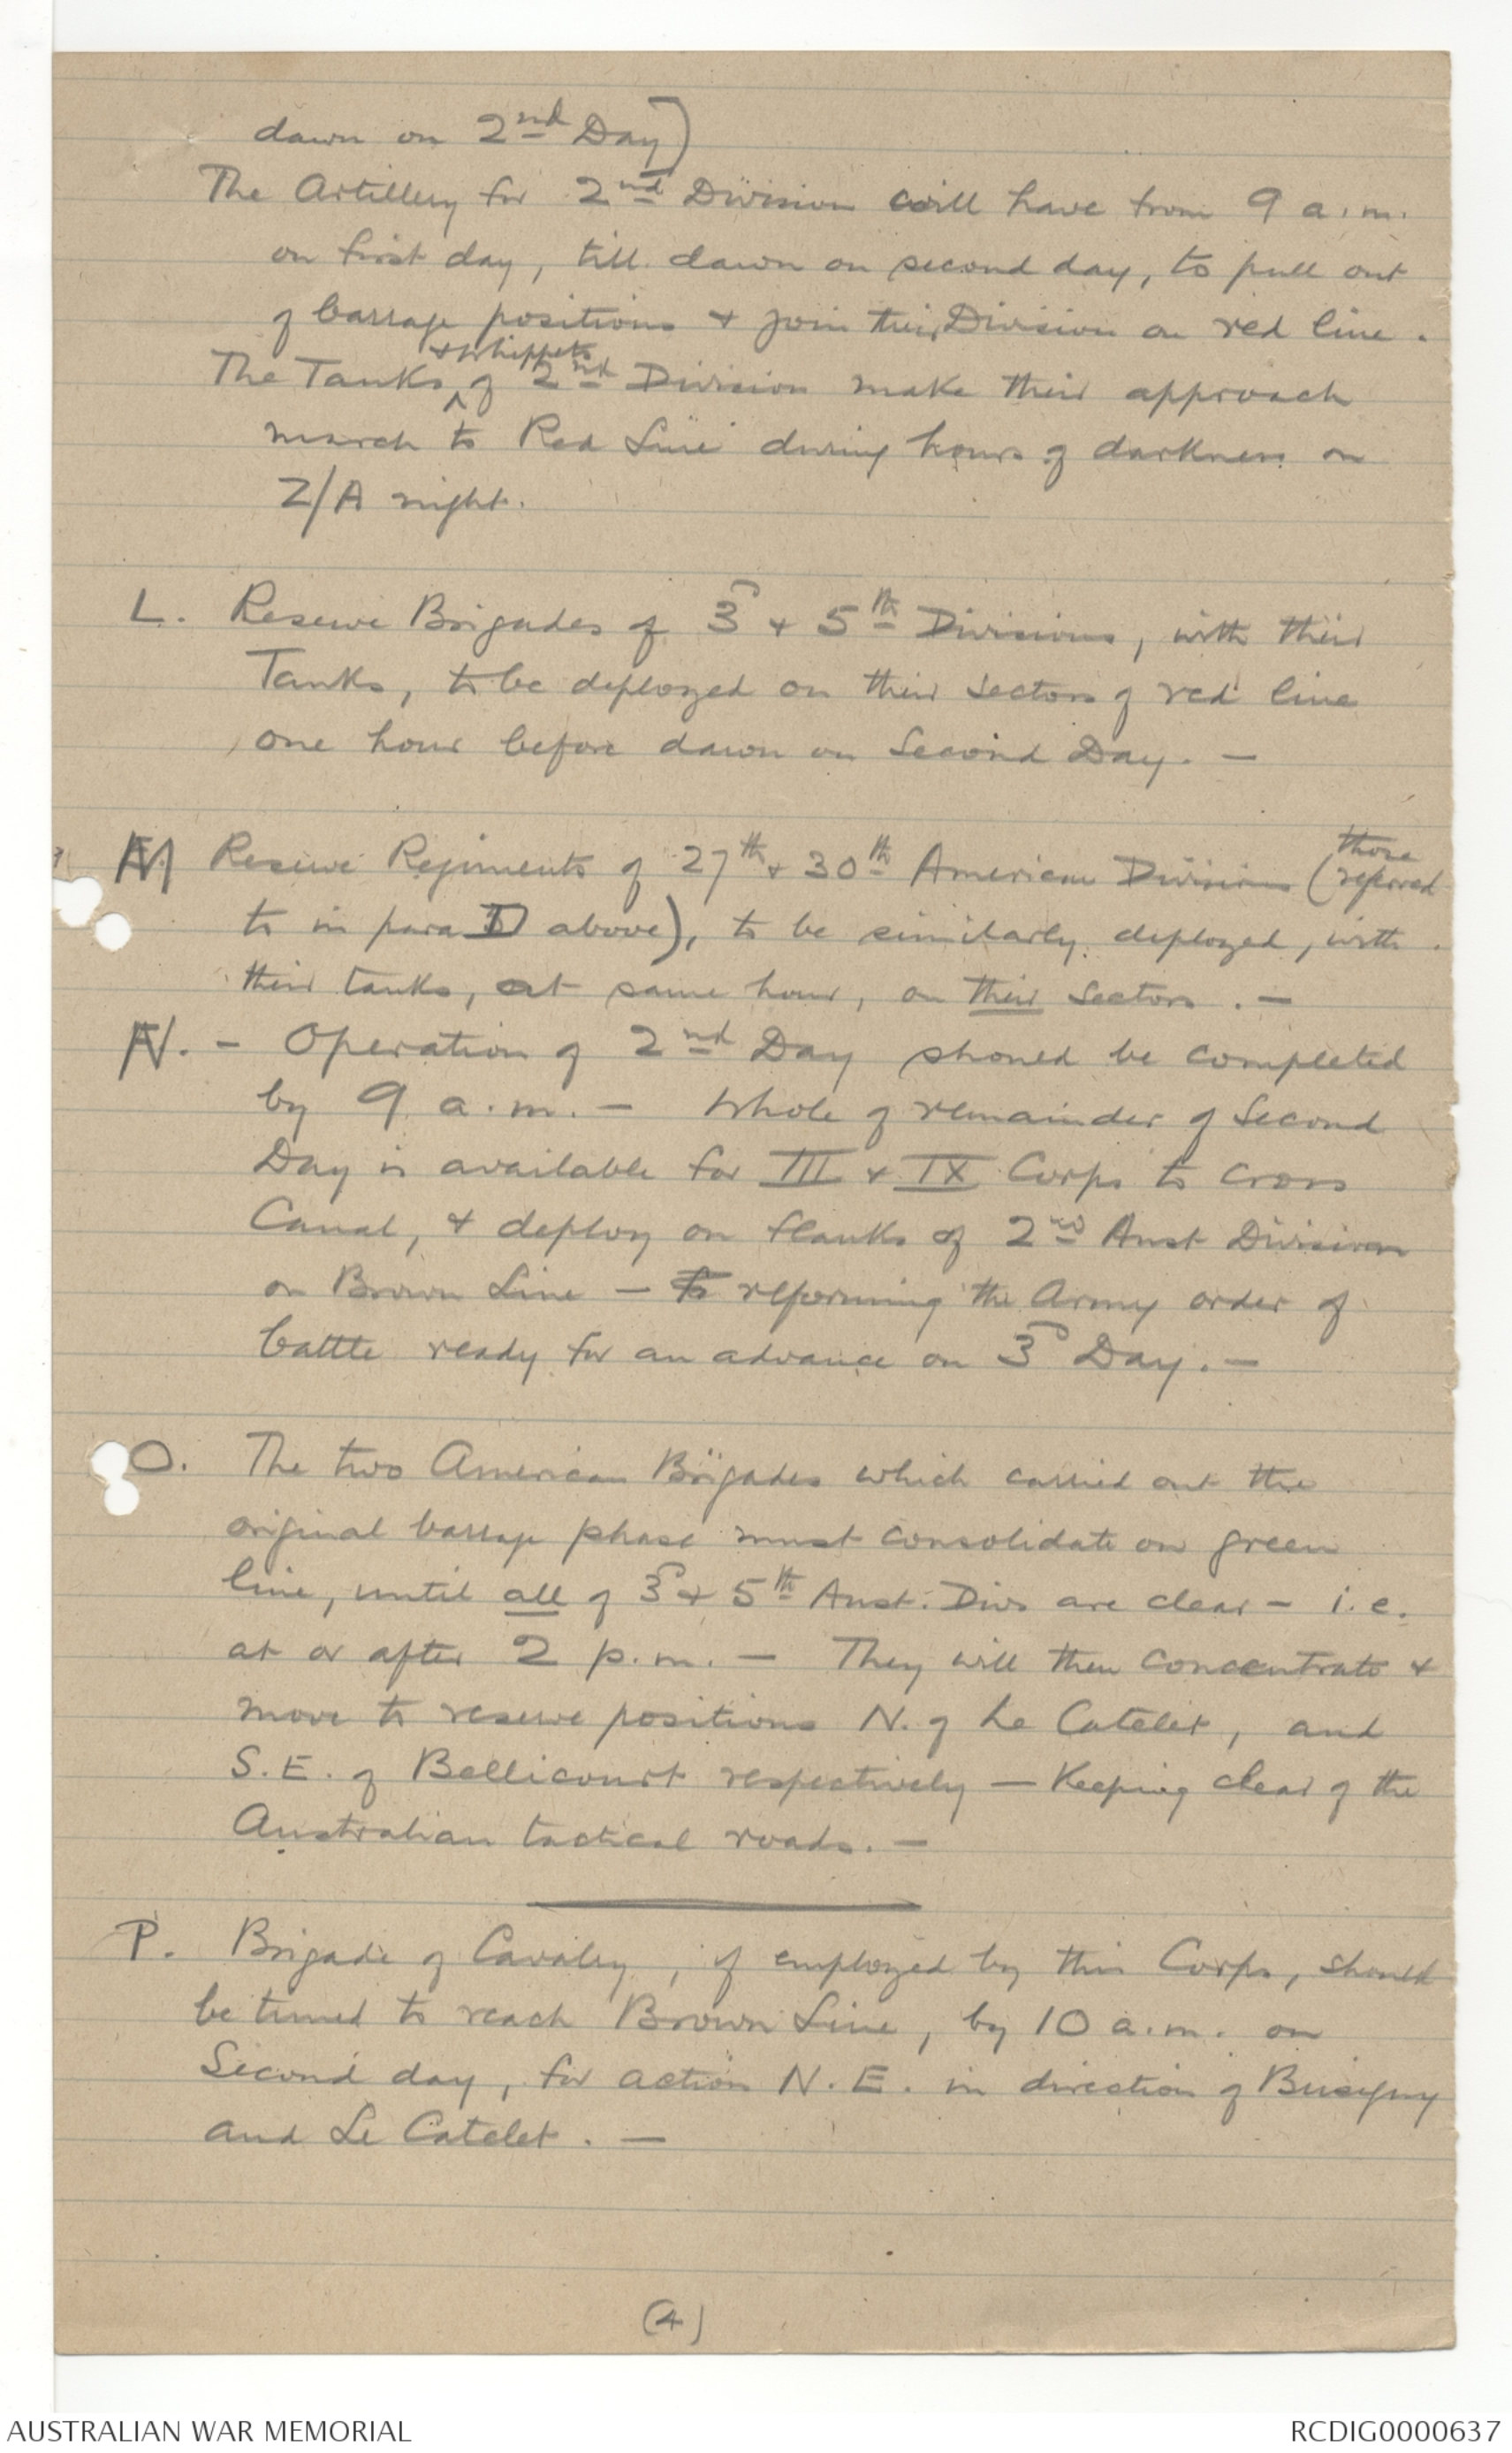 dawn on 2nd Day)
The Artillery for 2nd Division will have from 9 a.m.
on first day, till dawn on second day, to pull out
of barrage positions & join their Division on red line.
The Tanks & Whippets of 2nd Division make their approach
march to Red Line during hours of darkness on
Z/A night.
L. Reserve Brigades of 3rd & 5th Divisions, with their
Tanks, to be deployed on their sectors of red line
one hour before dawn on Second Day. —
M Reserve Regiments of 27th & 30th American Divisions (those referred
to in para D above), to be similarly deployed, with
their tanks, at same hour, on their sectors. —
N. — Operation of 2nd Day should be completed
by 9 a.m. — Whole of remainder of Second
Day is available for III & IX Corps to cross
Canal, & deploy on flanks of 2nd Aust Division
on Brown Line — reforming the Army order of
battle ready for an advance on 3rd Day. —
O. The two American Brigades which carried out the
original barrage phase must consolidate on green
line, until all of 3rd & 5th Aust. Divs are clear — i.e.
at or after 2 p.m. — They will then concentrate &
move to reserve positions N. of Le Catelet, and
S.E. of Bellicourt respectively — Keeping clear of the
Australian tactical roads. —
P. Brigade of Cavalry, if employed by this Corps, should
be timed to reach Brown Line, by 10 a.m. on
Second day, for action N.E. in direction of Busigny
and Le Catelet. —
(4)
AUSTRALIAN WAR MEMORIAL
RCDIG0000637